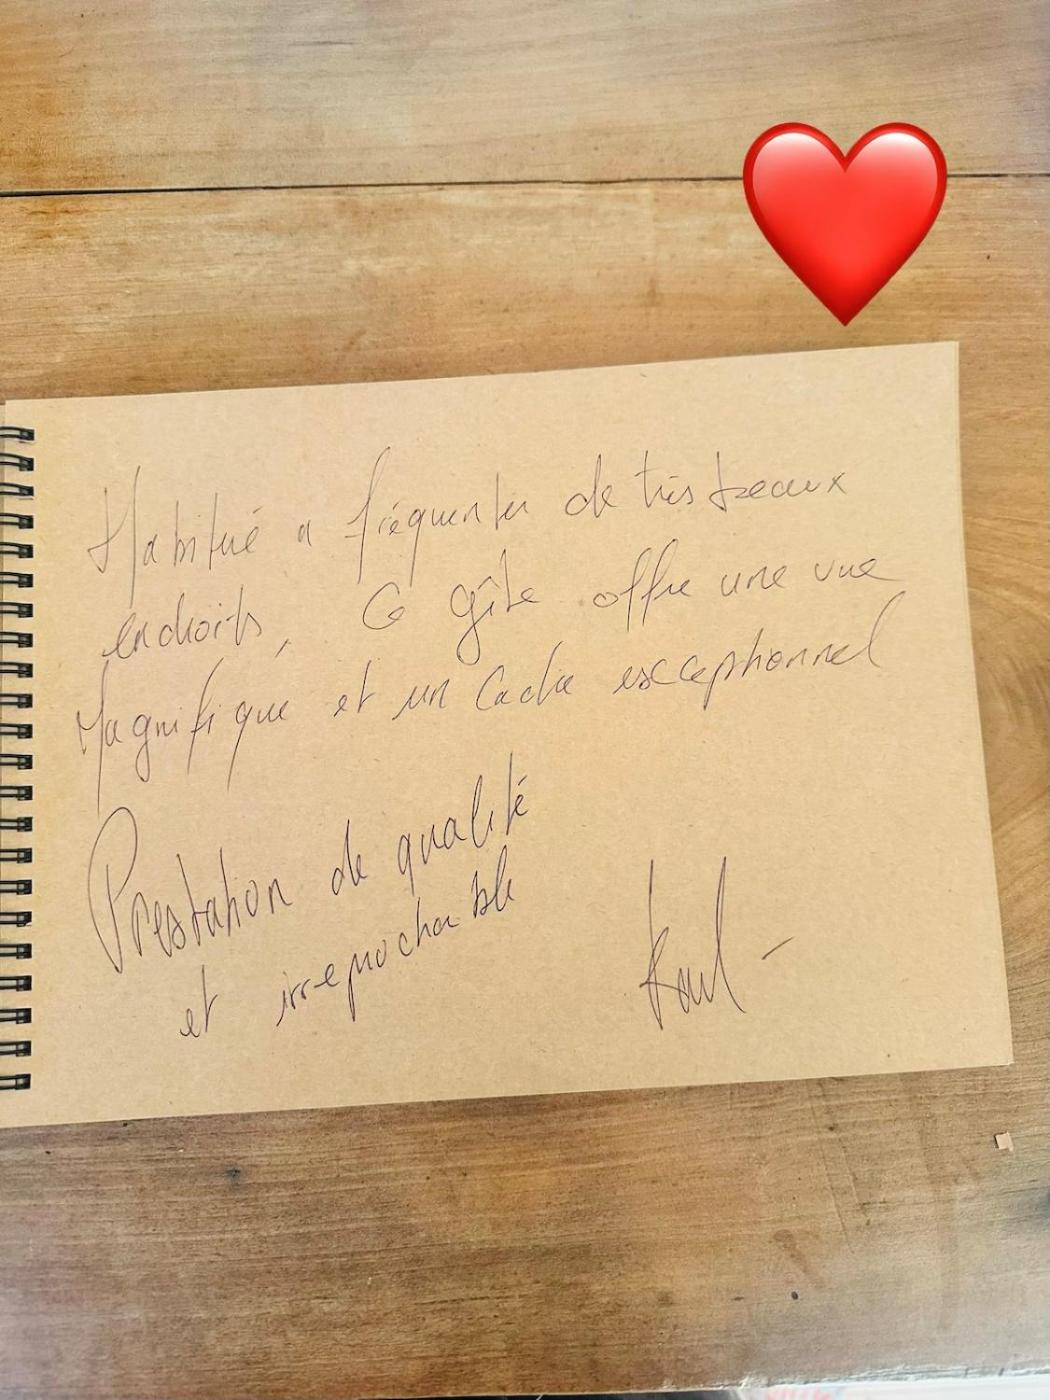 Habitué a fréquenter de très beaux
endroits, Ce gîte offre une vue
Magnifique et un Cadre exceptionnel
Prestation de qualité
et irreprochable